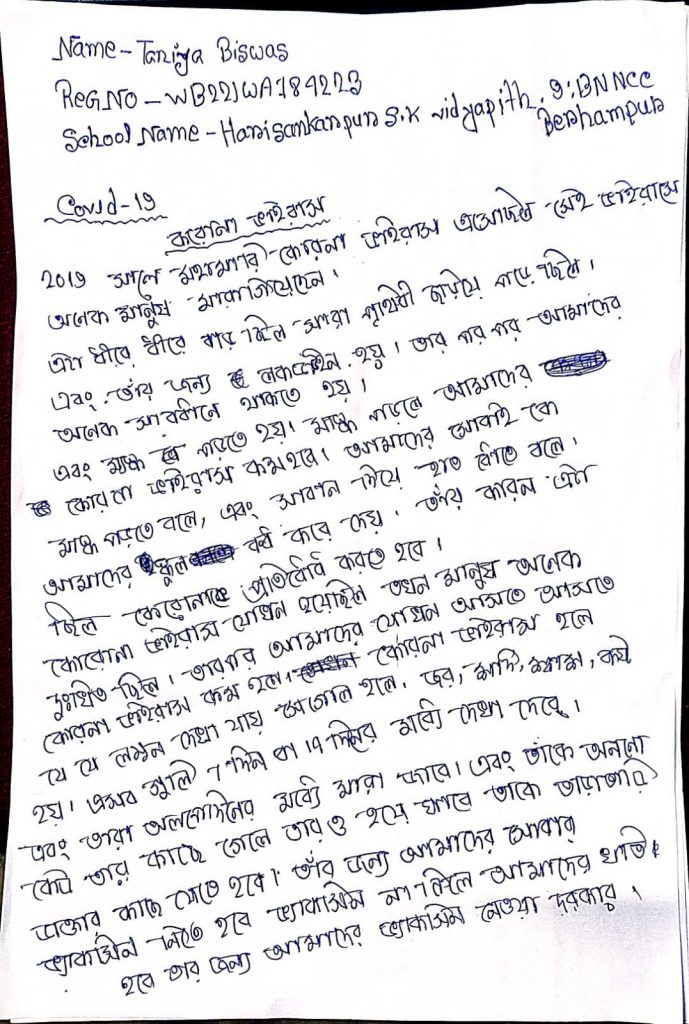 Name - Taniya Biswas
Reg No - WB22JWA184223
School Name - Harisankarpur S.K vidyapith. 9; BN NCC
Berhampur
Covid-19
করোনা ভাইরাস
2019 সালে মহামারী কোরনা ভাইরাস এসেছিল সেই ভাইরাসে
অনেক মানুষ মারাগিয়েছেন।
এটা ধীরে ধীরে সারা পৃথিবী ছড়িয়ে পড়েছিল।
এবং তাঁর জন্য লকডাউন হয়। তার পর পর আমাদের
অনেক সাবধানে থাকতে হয়।
এবং মাস্ক পড়তে হয়। মাস্ক পড়লে আমাদের
কোরনা ভাইরাস কম হবে। আমাদের সবাই কে
মাস্ক পড়তে বলে, এবং সাবান দিয়ে হাত ধোঁতে বলে।
আমাদের স্কুল বন্ধ করে দেয়। তাঁর কারন এটা
ছিল কোরোনাকে প্রতিরোধ করতে হবে।
কোরোনা ভাইরাস যোখন হয়েছিল তখন মানুষ অনেক
দুঃখিত ছিল। তারপর আমাদের যোখন আসতে আসতে
কোরনা ভাইরাস কম হলো। কোরনা ভাইরাস হলে
যে যে লক্ষন দেখা যায় সেগোল হলে, জ্বর, সর্দি,
হয়। এসব গুলি 7 দিন বা 14 দিনের মধ্যে দেখা দেবে।
এবং তারা অলপোদিনের মধ্যে মারা জাবে। এবং তাঁকে অননো
কেউ তার কাছে গেলে তারও হয়ে যাবে তাকে তাড়াতাড়ি
ডাক্তার কাছে যেতে হবে। তাঁর জন্য আমাদের সোবার
ভ্যাকসিন নিতে হবে ভ্যাকসিন না নিলে আমাদের খতি
হবে তার জন্য আমাদের ভ্যাকসিন নেওয়া দরকার।